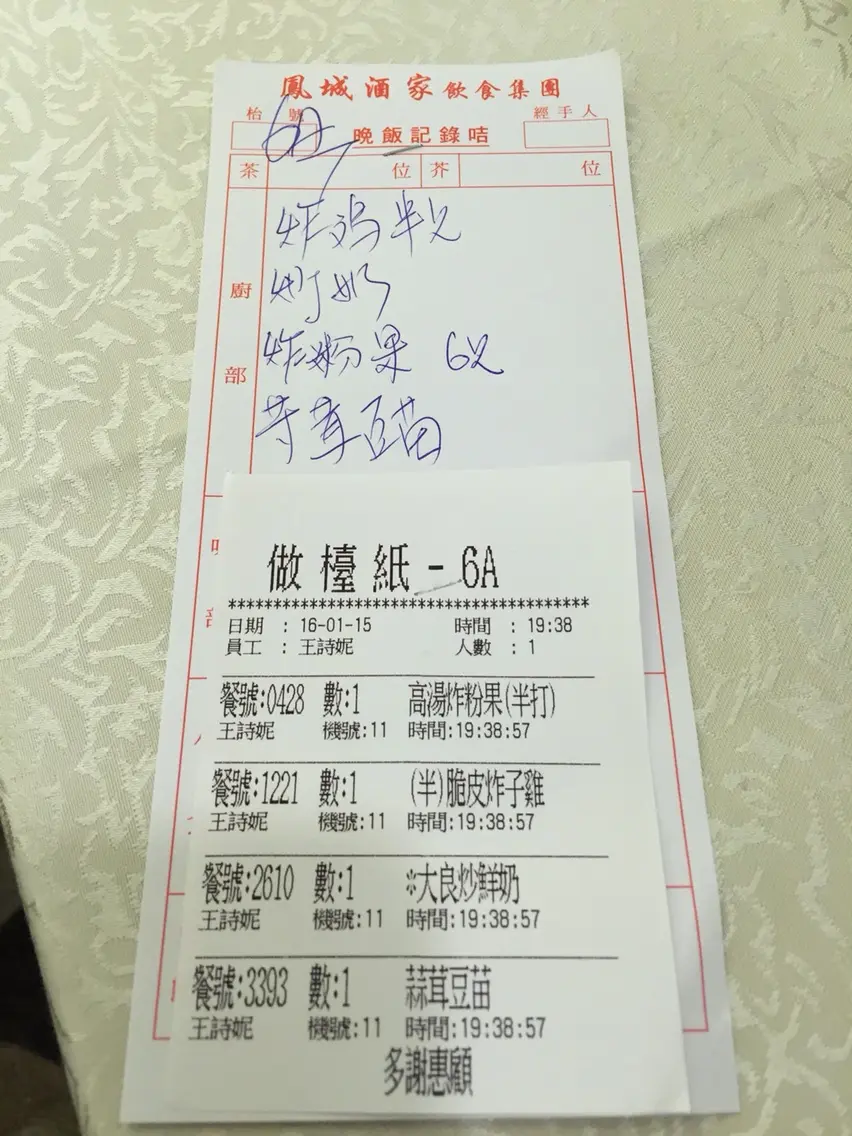 鳳城酒家飲食集團
枱號 經手人
6A
晚飯記錄咭
茶 位 芥 位
炸鸡半只
炒奶
炸粉果 6只
豆苗
廚
部
部
做檯紙-6A
****************************************
日期 : 16-01-15 時間 : 19:38
員工 : 王詩妮 人數 : 1
餐號:0428 數:1 高湯炸粉果(半打)
王詩妮 機號:11 時間:19:38:57
餐號:1221 數:1 (半)脆皮炸子雞
王詩妮 機號:11 時間:19:38:57
餐號:2610 數:1 *大良炒鮮奶
王詩妮 機號:11 時間:19:38:57
餐號:3393 數:1 蒜茸豆苗
王詩妮 機號:11 時間:19:38:57
多謝惠顧